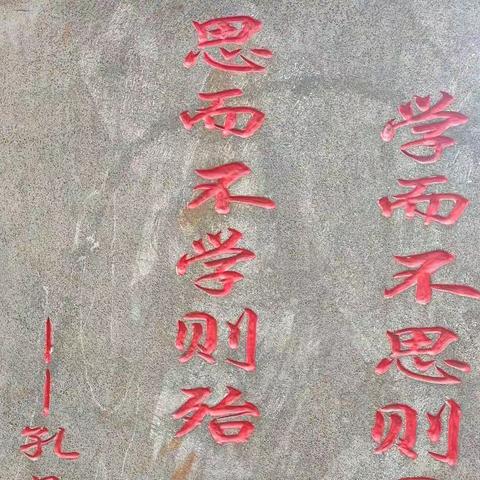 学而不思则
思而不学则殆
——孔